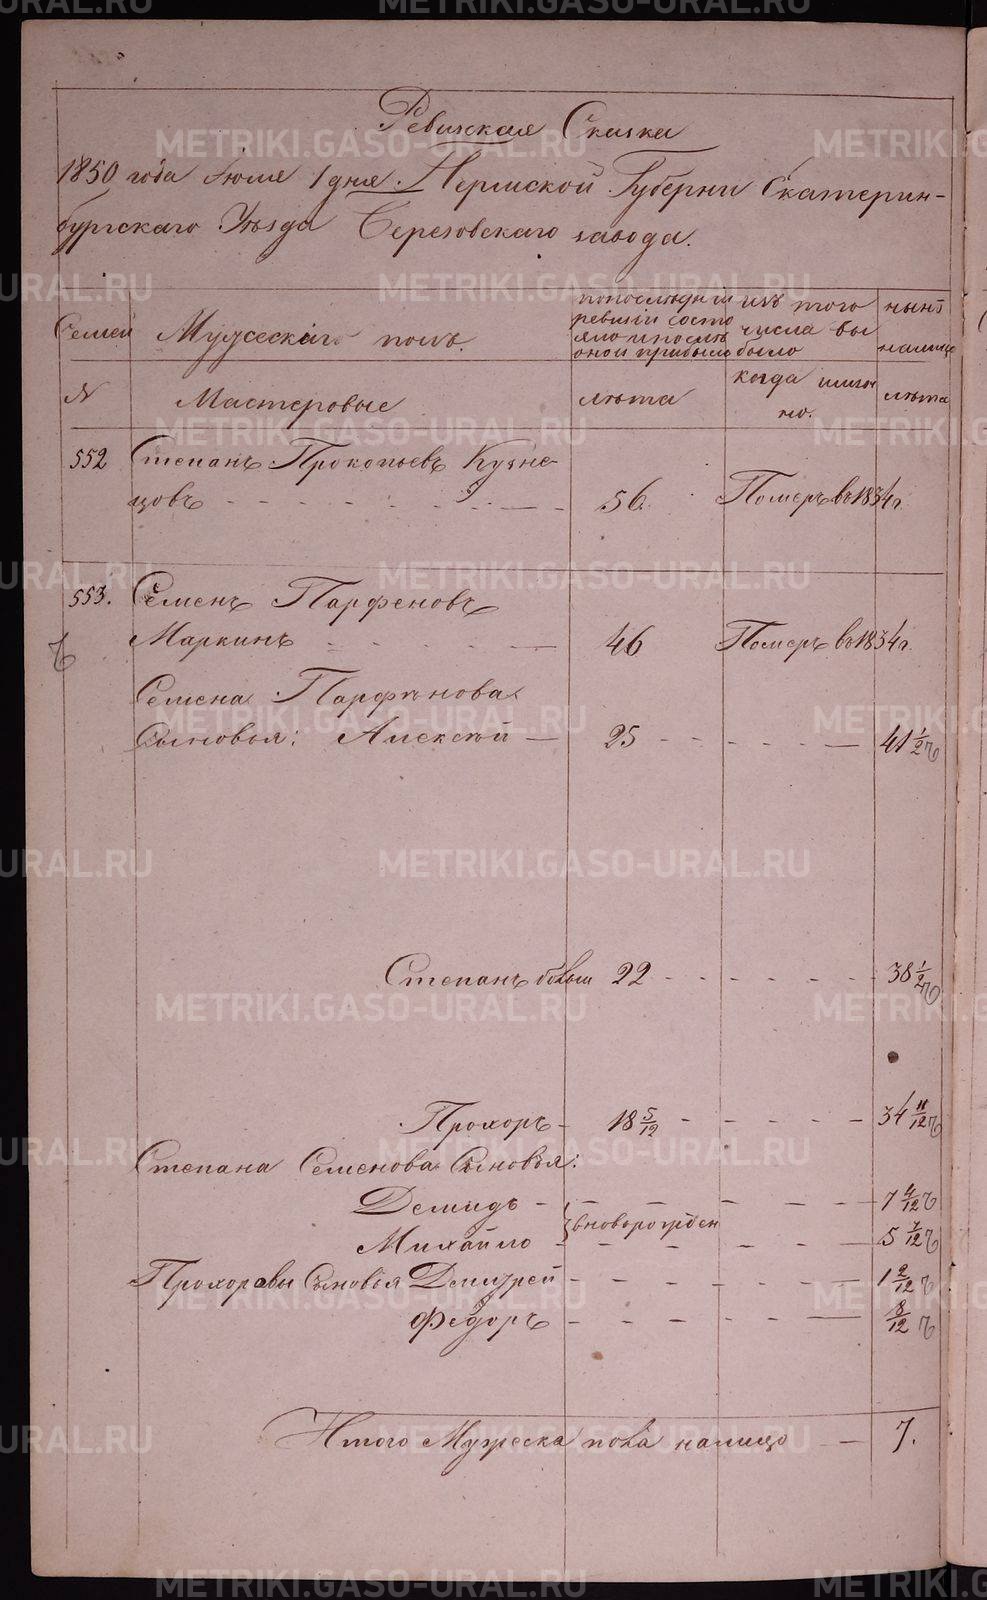 Ревизская Сказка
1850 года Июля 1 дня. Пермской Губернии Екатерин-
бургского Уѣзда Березовскаго завода.
Семей
Мужескаго полъ.
попослѣдней ревизіи состояло и послѣ оной прибыло
изъ того числа выбыло
нынѣ налицо
№
Мастеровые
лѣта
когда именно.
лѣта
552 Степанъ Прокопьевъ Кузне-
цовъ - - - - 56. Померъ въ 1834 г.
553. Семенъ Парфеновъ
Маркинъ - - - - 46 Померъ въ 1834 г.
Семена Парфенова
Сыновья: Алексѣй — 25 - - - - 41 1/2
Степанъ 22 - - - - 38 1/2
Прохоръ - 18 5/12 - - - - 34 11/12
Степана Семенова Сыновья:
Демидъ - - - - 7 4/12
вноворожден
Михайло - - - - 5 7/12
Прохоравы Сыновья Дмитрей - - - - 1 2/12
Федоръ - - - - 8/12
Итого Мужеска пола налицо — 7.
METRIKI.GASO-URAL.RU